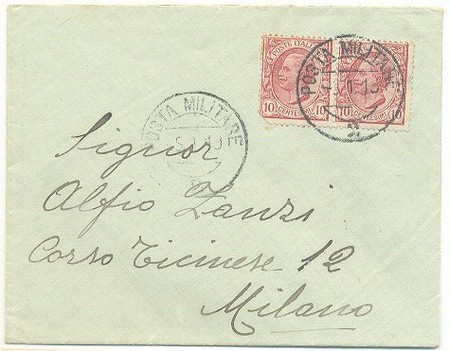 POSTE ITALIANE
10 CENTESIMI 10
10 CENTESIMI 10
POSTA MILITARE
POSTA MILITARE
2
Signor
Alfio Zanzi
Corso Ticinese 12
Milano